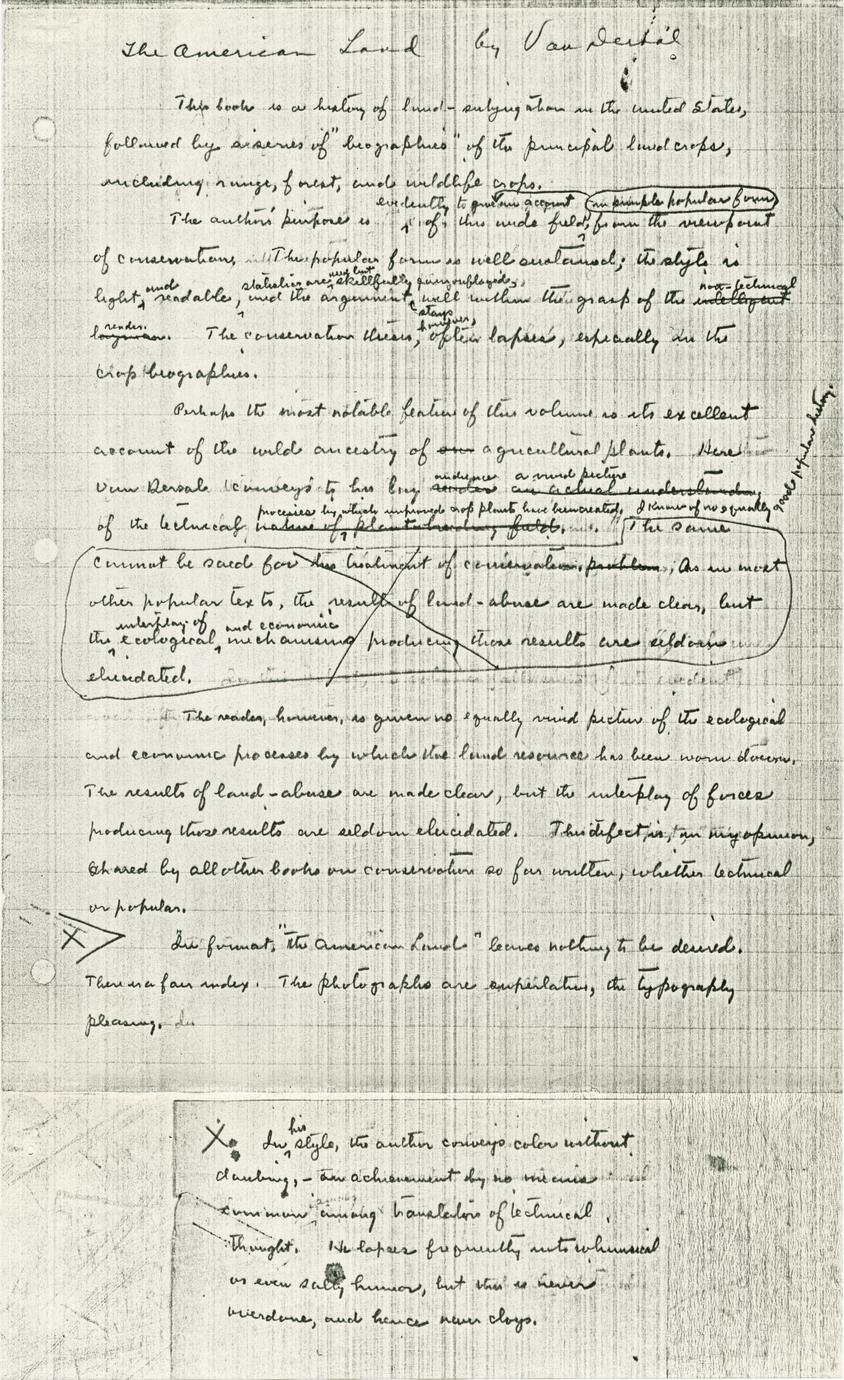 The American Land by Van Dersal
This book is a history of land-subjugation in the United States,
followed by a series of "biographies" of the principal land crops,
including range, forest, and wildlife crops.
evidently to give an account in simple popular form
The author's purpose is of this wide field, from the viewpoint
of conservation. The popular form is well sustained; the style is
and statistics are skillfully non-technical
light, readable, and the argument well within the grasp of the intelligent
reader. stays however,
layman. The conservation thesis, often lapses, especially in the
crop biographies.
Perhaps the most notable feature of this volume is its excellent
account of the wild ancestry of our agricultural plants. Here
audience a vivid picture
Van Dersal conveys to his lay reader an actual understanding
processes by which improved crop plants have been created. I know of no equally
good popular history.
of the technical nature of plant-breeding field. The same
cannot be said for his treatment of conservation problems; As in most
other popular texts, the results of land-abuse are made clear, but
interplay of and economic
the ecological mechanisms producing those results are seldom
elucidated.
The reader, however, is given no equally vivid picture of the ecological
and economic processes by which the land resource has been worn down.
The results of land-abuse are made clear, but the interplay of forces
producing those results are seldom elucidated. This defect is, in my opinion,
shared by all other books on conservation so far written, whether technical
or popular.
X
In format, "The American Land" leaves nothing to be desired.
There is a fair index. The photographs are superlative, the typography
pleasing.
his
X In style, the author conveys color without
daubing, - an achievement by no means
common among translators of technical
thought. He lapses frequently into whimsical
or even salty humor, but this is never
overdone, and hence never cloys.